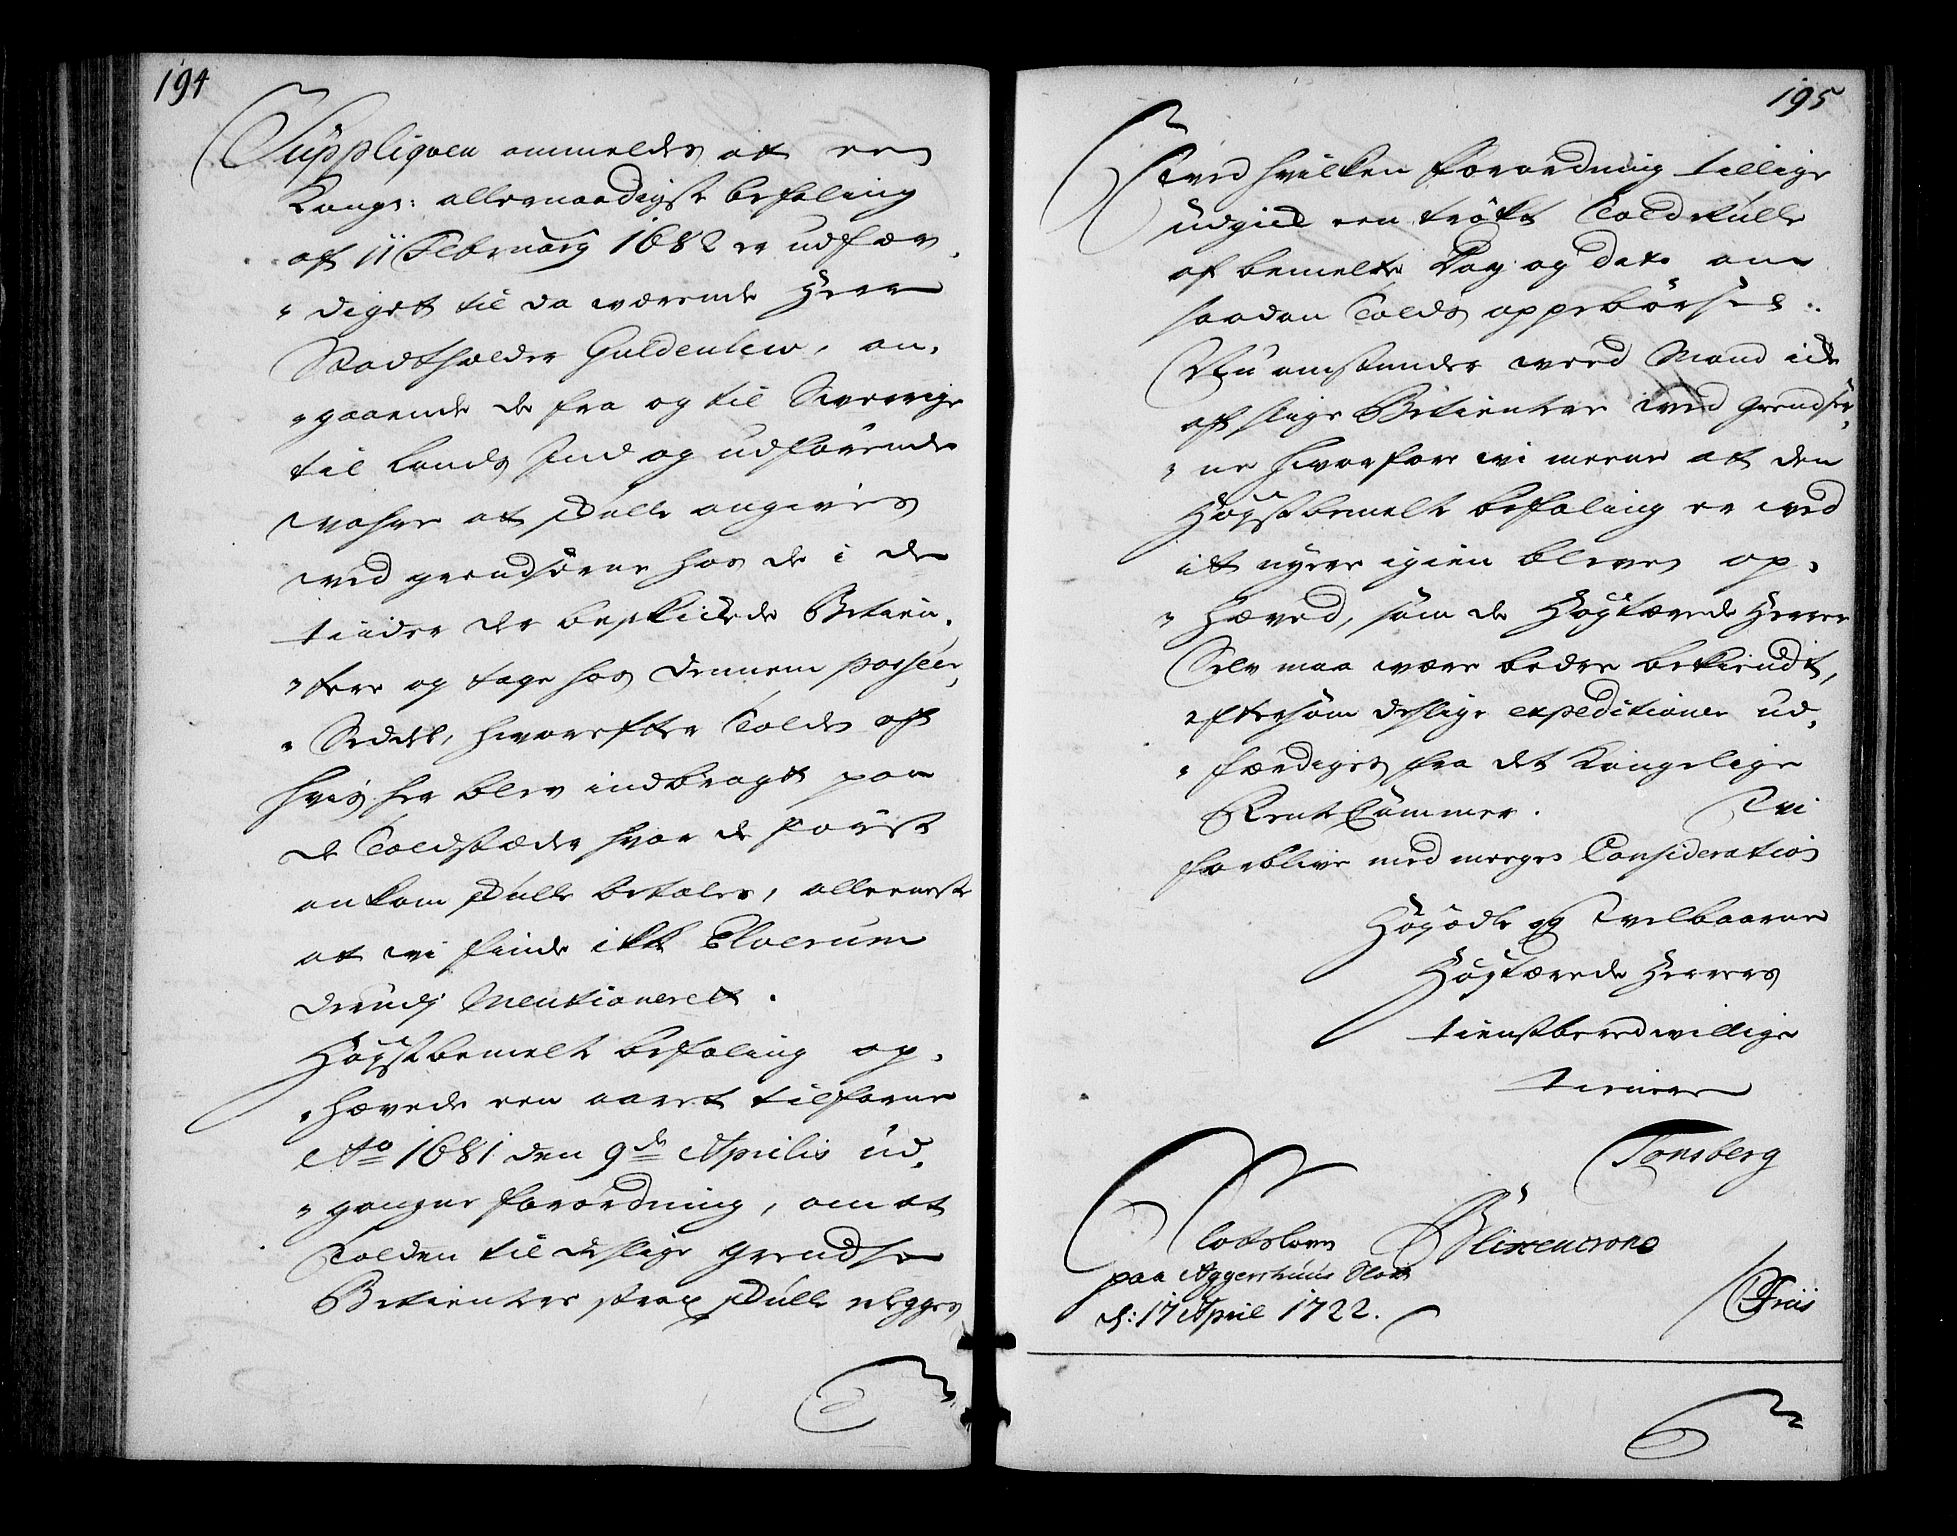 194
Suppliqven ommeldes at een
Kongr: allernaadigst befaling
af 11 February 1682 er udfær„
„diget til da værende Herr
Stadtholder Guldenlew, an„
„gaaende de fra og til Sverrige
til Lands Ind og udförende
vahre at skulle angives
ved grendserne hos de i de
tiider der beskickede Betien„
„tere og tage hos dennem passeer„
„Seddel, hvorefter Tolden af
hvis her blev indbragt paa
de Toldstæder hvor de först
ankom skulle betales, alleeneste
at vi finde ikke Elverum
derudj Mentioneret.
Högstbemelte befaling op„
„hævede een aaret tilforne
Ao 1681 den 9de Aprilis ud„
„gangne forordning, om at
Tolden til deslige grendse
Betientere strax skulle erlegges
195
ved hvilken forordning tillige
udgick een trökt Toldrulle
af bemelte Dag og dato om
saadan Tolds oppebörsel.
Nu omstunder veed Mand icke
af slige Betientere ved Grendser„
„ne hvorfore vi meene at den
Högstbemelte befaling er ved
it nyere igien bleven op„
„hæved, som de Högtærede Herrer
Selv maa være bedre bekiendt,
eftersom deslige expeditioner ud„
„færdiges fra det Kongelige
RentCammer. Vi
forblive med meegen Consideration
Högædle og Velbaarne
Högtærede Herrers
tienstberedwillige
tienere
Tonsberg
Slotsloven Blixencrone
paa Aggershuus Slott
d: 17 April 1722.
Friis